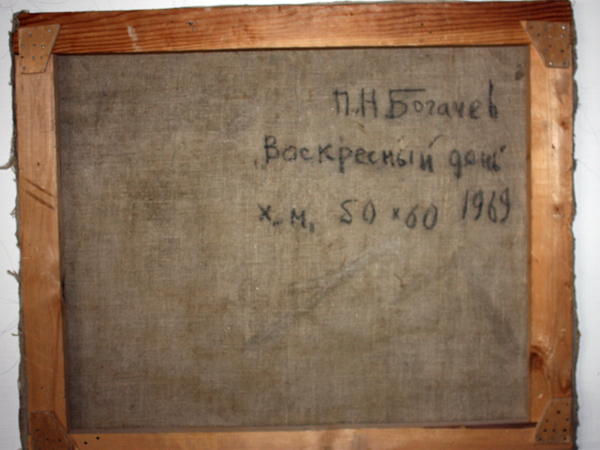 П.Н Богачев
„Воскресный день"
х. м. 50 x 60 1969